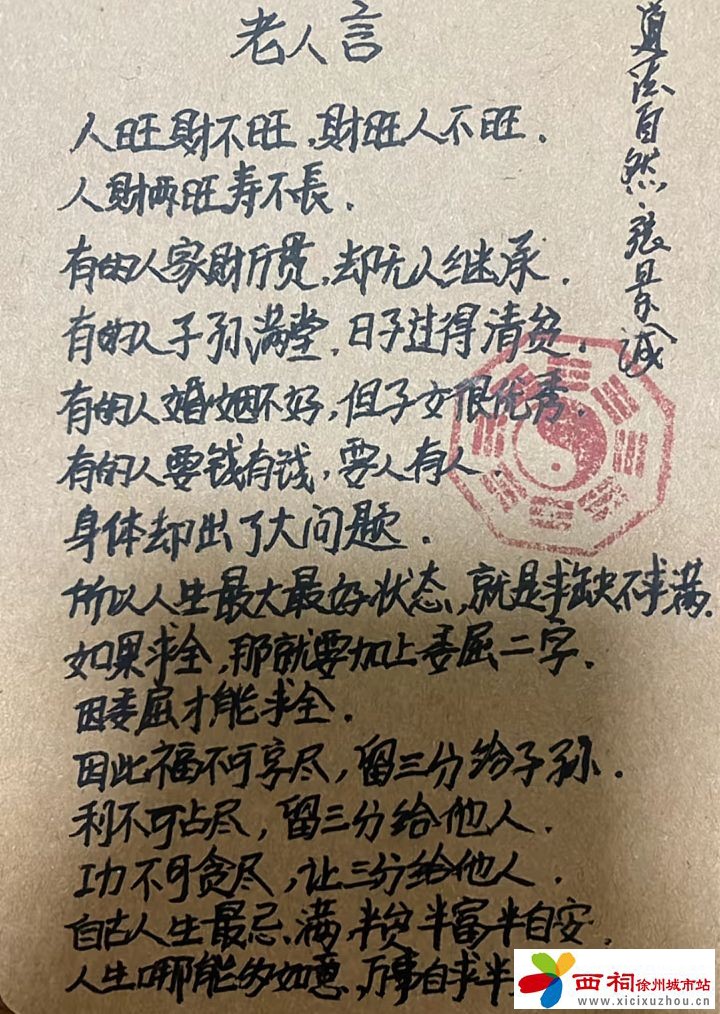 老人言
人旺財不旺，財旺人不旺．
人財两旺寿不長．
有的人家財万贯，却无人继承．
有的人子孙满堂，日子过得清贫．
有的人婚姻不好，但子女很优秀．
有的人要钱有钱，要人有人．
身体却出了大问题．
所以人生最大最好状态，就是求缺不求满．
如果求全，那就要加上委屈二字．
因委屈才能求全．
因此福不可享尽，留三分给子孙．
利不可占尽，留三分给他人．
功不可贪尽，让三分给他人．
自古人生最忌满，半贫半富半自安．
人生哪能多如意，万事自求半
道法自然，張景诚
西祠徐州城市站
www.xicixuzhou.cn